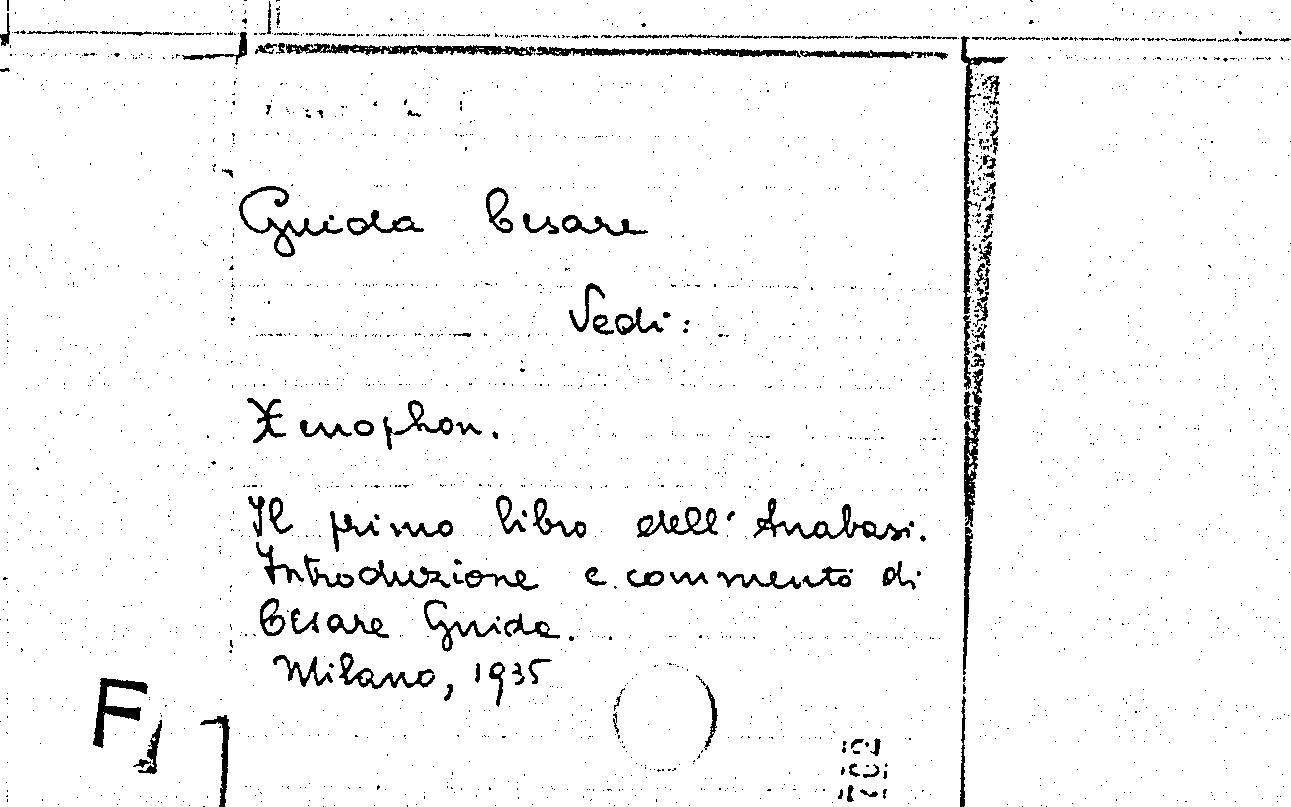 Guida Cesare
Vedi:
Xenophon.
Il primo libro dell'Anabasi.
Introduzione e commento di
Cesare Guida.
Milano, 1935
F